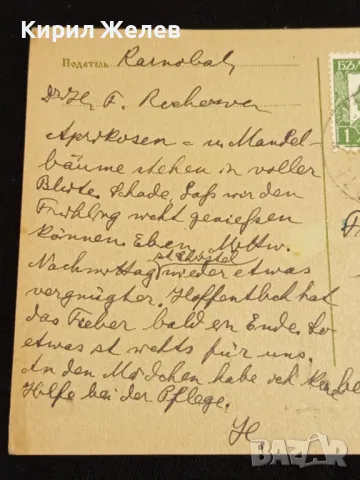 Кирил Желев
Податель Karnobat
Dr. H. F.
БЪЛ
1
Aprikosen = u. Mandel-
bäume stehen in voller
Blüte. Schade, daß wir den
Frühling nicht geniessen
können. Eben, Mittw.
Nachmittag ist Christel wieder etwas
vergnügter. Hoffentlich hat
das Fieber bald ein Ende. So
etwas ist nichts für uns.
An den Mädchen habe ich keine
Hilfe bei der Pflege.
H.
BAZAR
bg